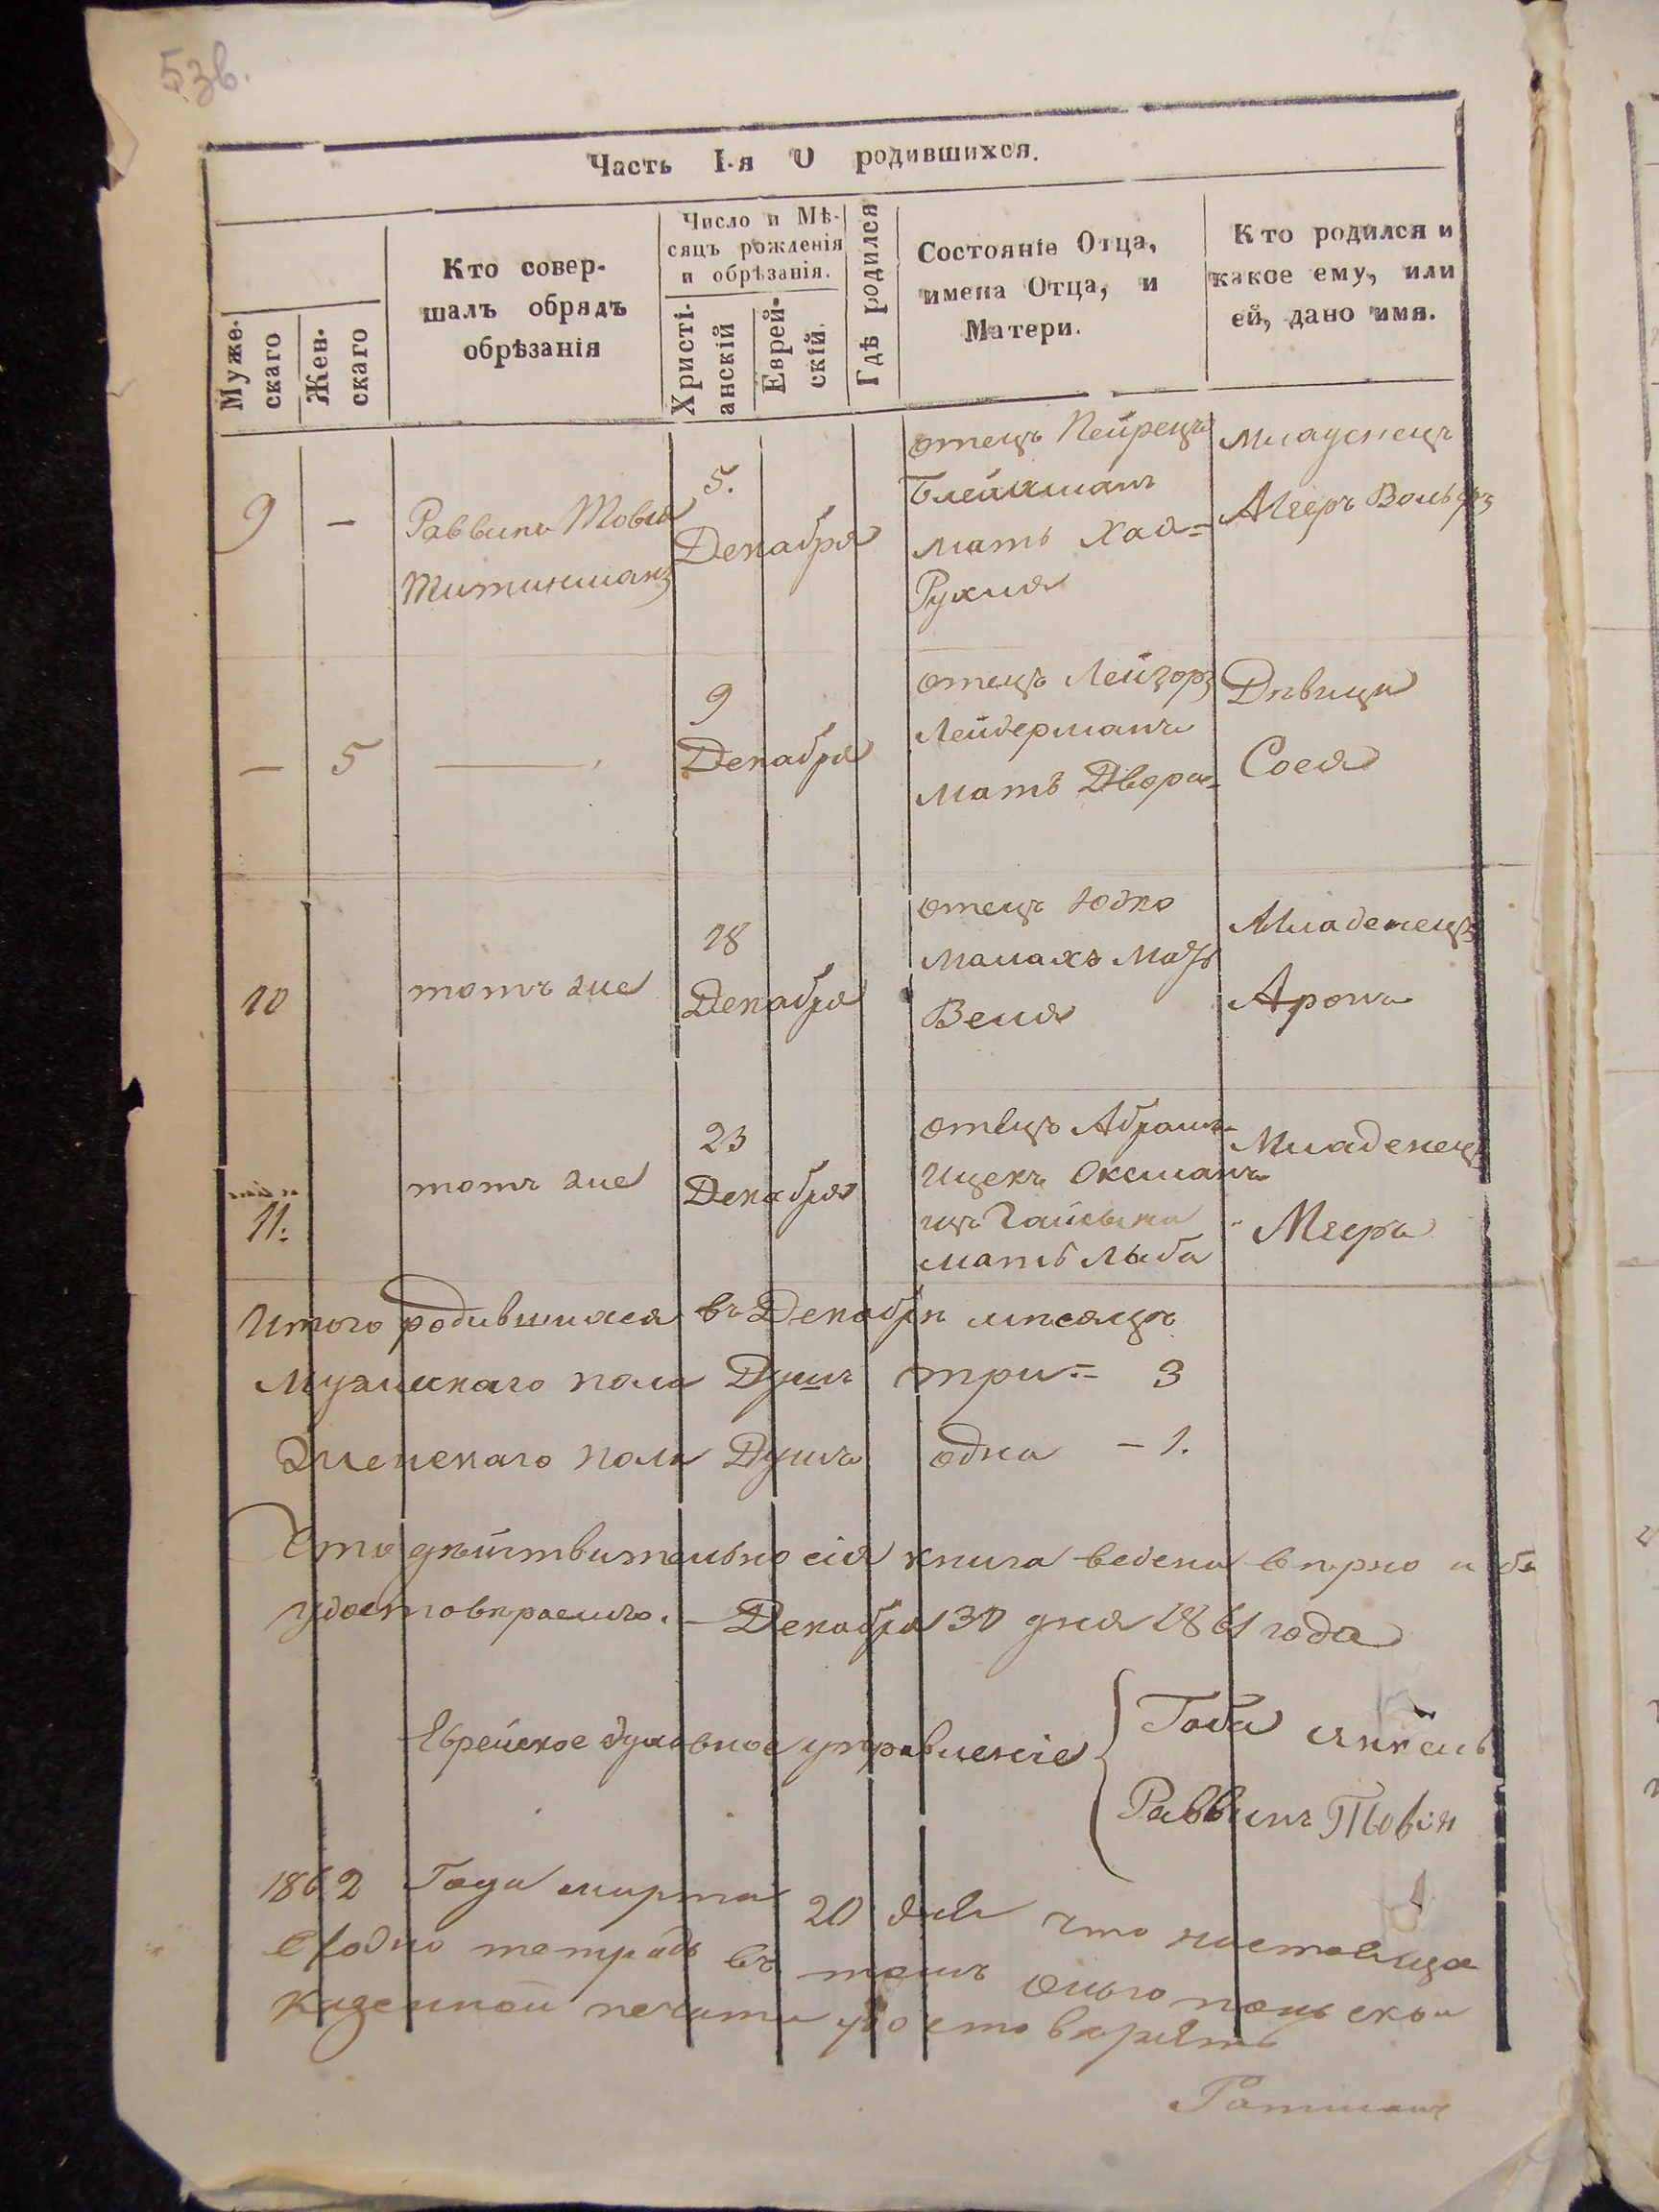 53в.
Часть I-я О родившихся.
Муже-
скаго
Жен-
скаго
Кто совер-
шалъ обрядъ
обрѣзанія
Число и Мѣ-
сяцъ рожденія
и обрѣзанія.
Христі-
анскій
Еврей-
скій.
Гдѣ родился
Состояніе Отца,
имена Отца, и
Матери.
Кто родился и
какое ему, или
ей, дано имя.
9 —
Раввинъ Товья
Титинманъ
5.
Декабря
отецъ Пейрецъ
Блейхманъ
мать Хая=
Рухля
младенецъ
Мееръ Вольфъ
— 5 —
9
Декабря
отецъ Лейзоръ
Лейдерманъ
мать Двора-
Дѣвица
Сося
10
тотъ же
18
Декабря
отецъ Юдко
Малахъ мать
Веля
Младенецъ
Аронъ
11.
тотъ же
23
Декабря
отецъ Абрамъ-
Ицекъ Оксманъ
изъ Гайсына
мать Лыба
Младенецъ
Мееръ
Итого родившихся въ Декабрѣ мѣсяцѣ
мужескаго пола Душъ три - 3
Женскаго пола Душъ одна - 1.
Что дѣйствительно сія книга ведена вѣрно и
удостовѣраемъ. — Декабря 30 дня 1861 года
Еврейское духовное управленіе
Раввинъ Товія
1862 Года марта 20 дня что настояща
тетрадь въ томъ
казенной печати удостовѣрять
Ратманъ